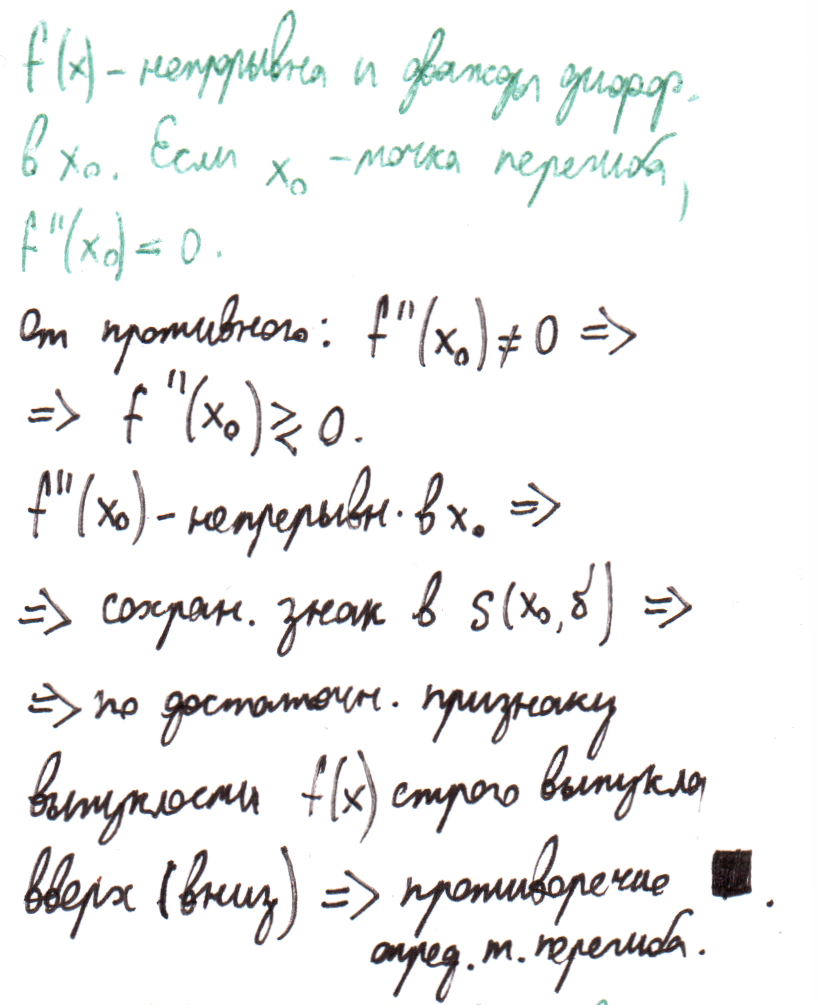 f(x) – непрерывна и дважды дифф.
в x₀. Если x₀ – точка перегиба,
f''(x₀) = 0.
От противного: f''(x₀) ≠ 0 =>
=> f''(x₀) ≷ 0.
f''(x₀) – непрерывн. в x₀ =>
=> сохран. знак в S(x₀, δ) =>
=> по достаточн. признаку
выпуклости f(x) строго выпукла
вверх (вниз) => противоречие ■.
опред. т. перегиба.